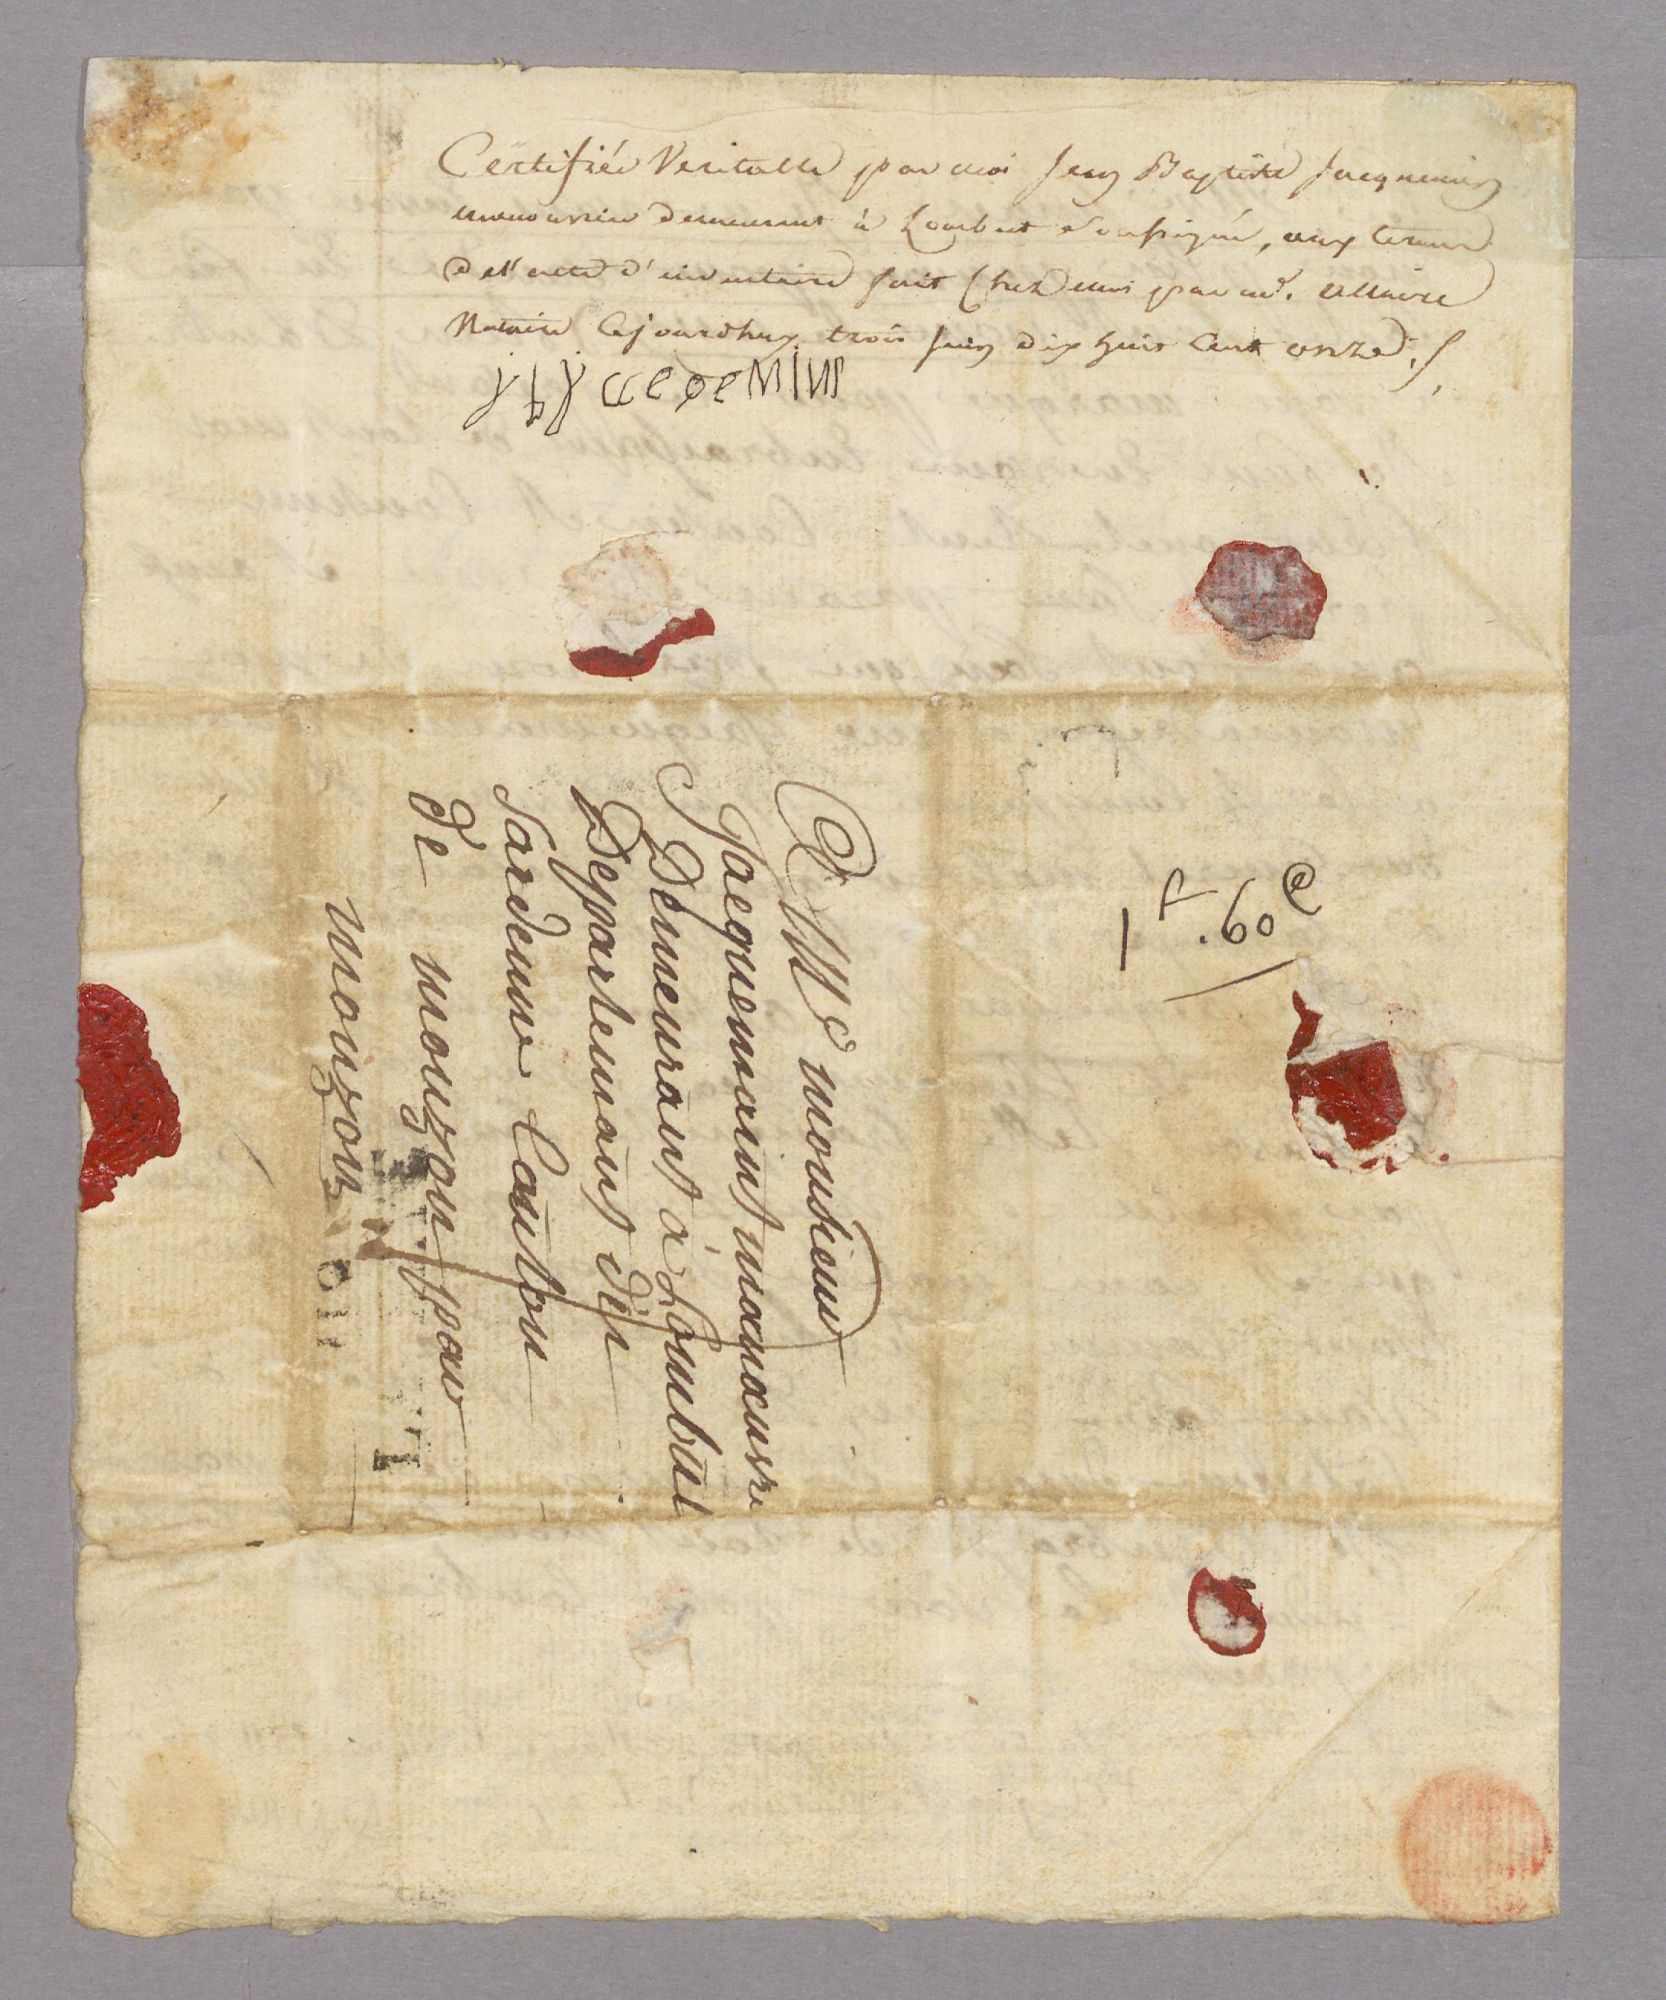 Certifiée Veritable par moi Jean Baptiste Jacquemin
manouvrier demeurant à Lombut soussigné, aux termes
de l'acte d'inventaire fait Chez moi par me. 
Notaire Cejourdhuy trois Juin dix huit Cent onze ./.
1f.60c
A Monsieur
Jaequemaint manœuvre
Demeurant a Lombut
Departemant der
Sardenne Canton
de mouzon par
mouzon